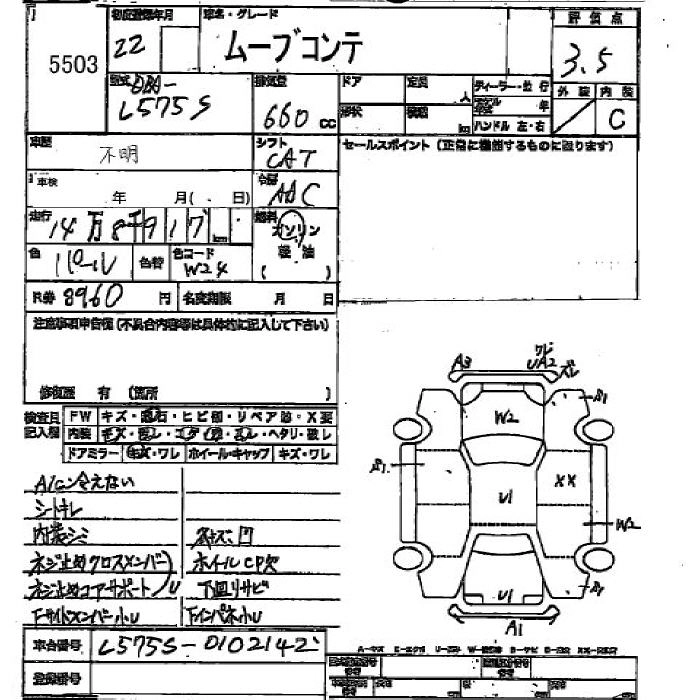 5503
初度登録年月
22
車名・グレード
ムーブコンテ
評価点
3.5
外装 内装
C
型式 DBA-
L575S
排気量
660 cc
ドア
形状
定員
人
積載
kg
ディーラー・並行
年
ハンドル 左・右
車歴
不明
シフト
CAT
セールスポイント(正常に機能するものに限ります)
車検
年 月( . 日)
冷房
AAC
走行
14万8千917 km
燃料
ガソリン
軽油
( )
色
パール
色替
色コード
W24
R券 8960 円
名変期限 月 日
注意事項申告欄(不具合内容等は具体的に記入して下さい)
修復歴 有 (箇所 )
検査員
記入欄
FW キズ・飛石・ヒビ割・リペア跡・X要
内装 キズ・汚レ・コゲ・穴・スレ・ヘタリ・破レ
ドアミラー キズ・ワレ ホイール・キャップ キズ・ワレ
A/Cン冷えない
シートキレ
内装シミ
キズ・凹
ネジ止めクロスメンバー
ホイールCP欠
ネジ止めコアサポート/U
下回リサビ
Fサイドメンバー小U
Fインパネ小U
車台番号 L575S-0102142
登録番号
A3
ワレ
UA2
ズレ
S1
W2
S1
U1
XX
W2
U1
S1
A1